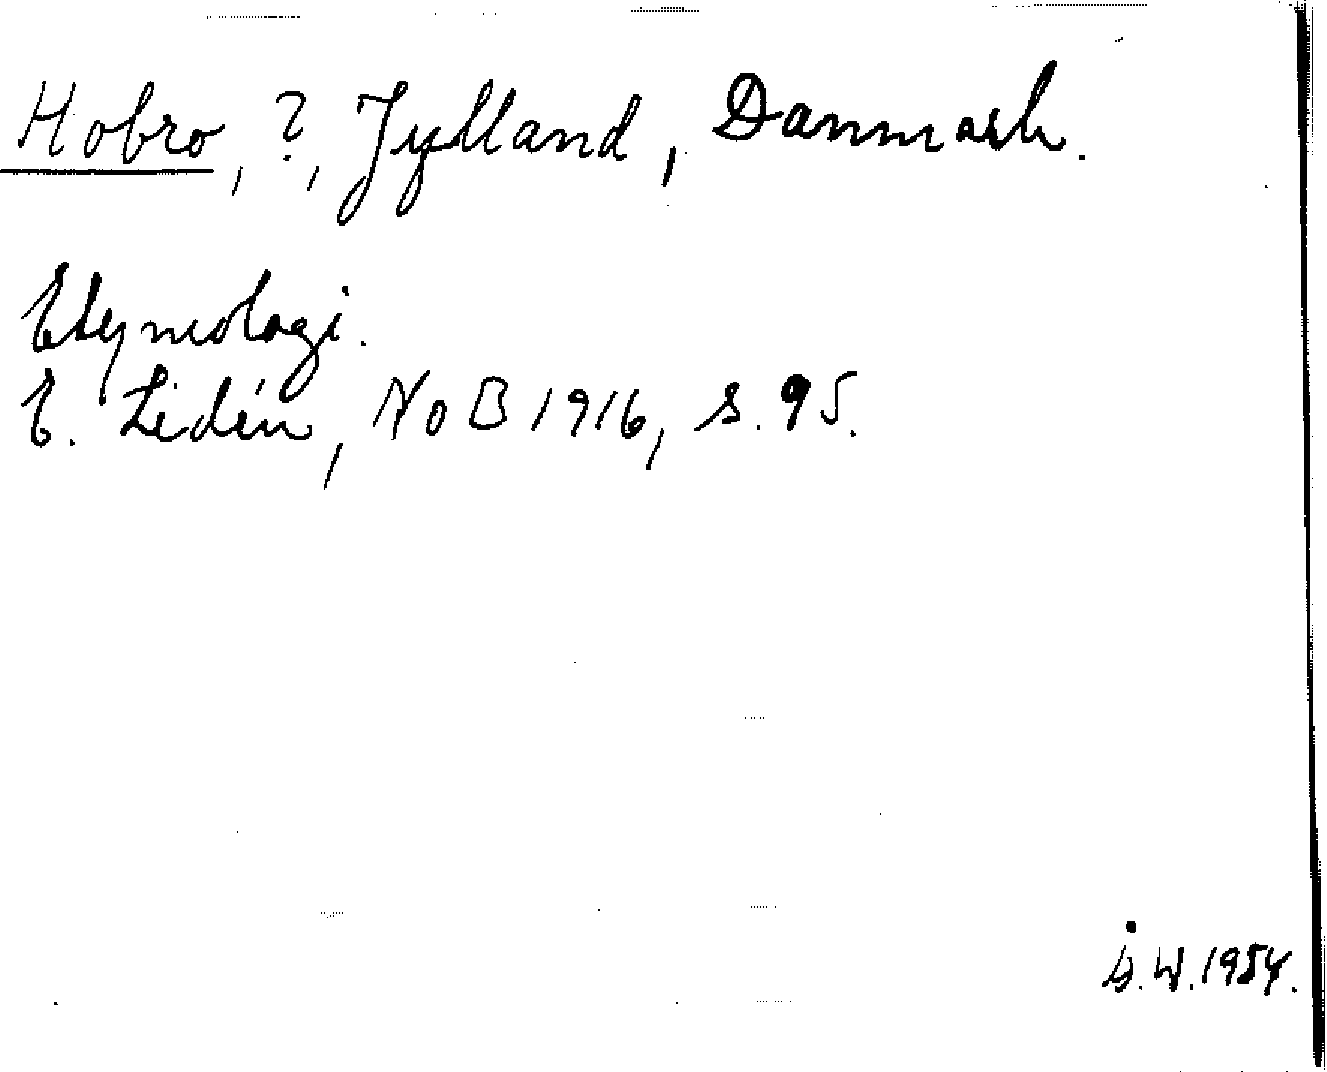 Hobro, ?, Jylland, Danmark.
Etymologi.
E. Lidén, NoB 1916, s. 95.
S.W. 1954.